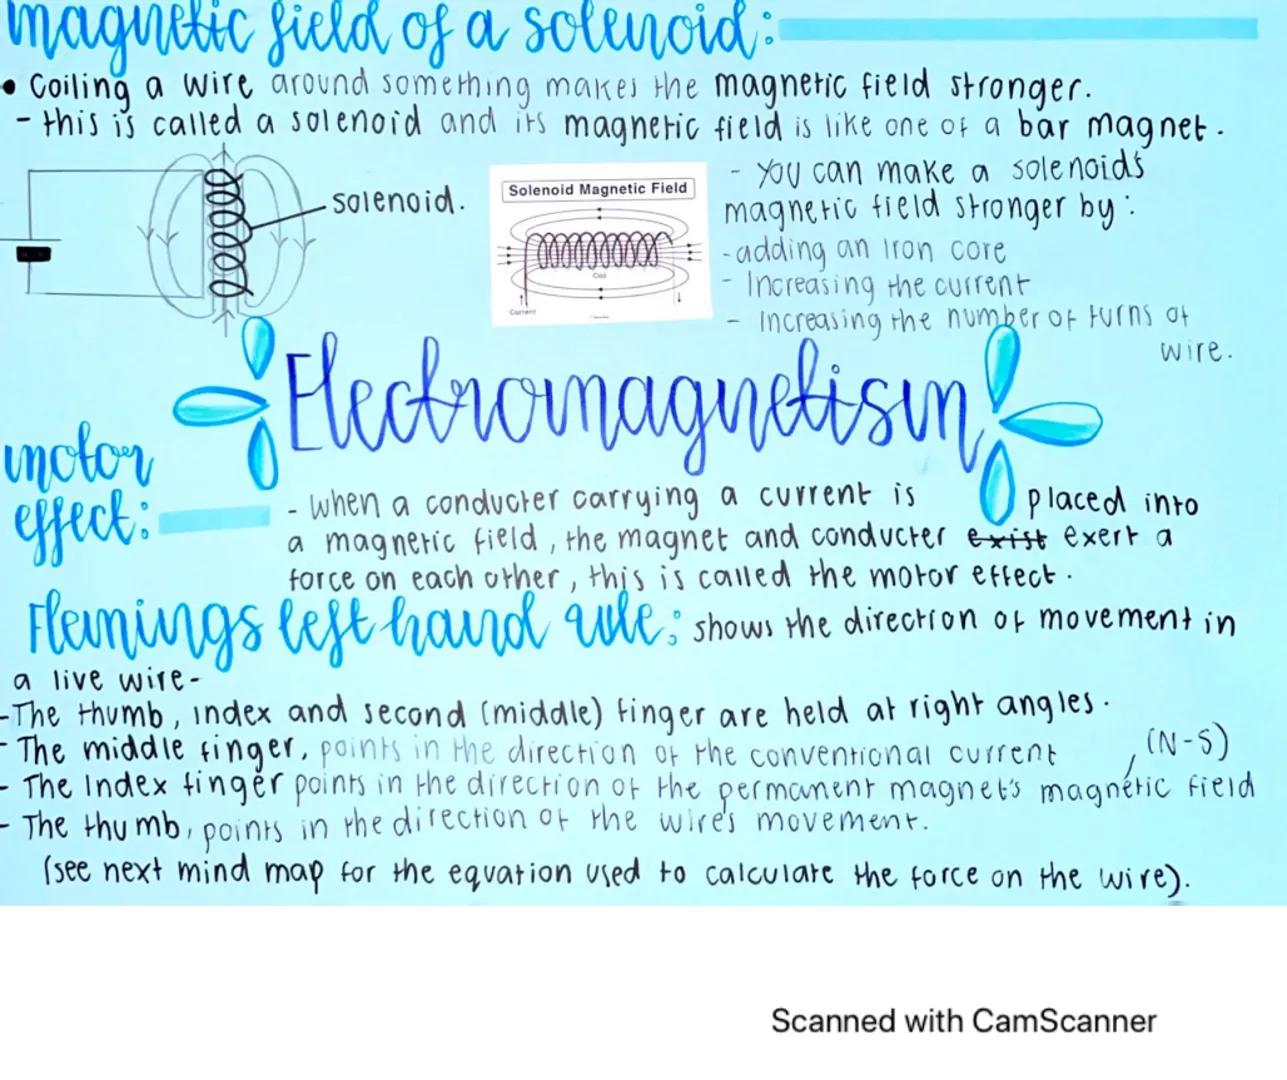 magnetic field of a solenoid:
• Coiling a wire around something makes the magnetic field stronger.
- this is called a solenoid and its magnetic field is like one of a bar magnet.
solenoid.
Solenoid Magnetic Field
Coil
Current
- you can make a solenoid's
magnetic field stronger by:
- adding an iron core
- Increasing the current
- Increasing the number of turns of
wire.
Electromagnetism
motor
effect:
- when a conducter carrying a current is placed into
a magnetic field, the magnet and conducter exist exert a
force on each other, this is called the motor effect.
Flemings left hand rule: shows the direction of movement in
a live wire-
- The thumb, index and second (middle) finger are held at right angles.
- The middle finger, points in the direction of the conventional current
(N-S)
- The Index finger points in the direction of the permanent magnet's magnetic field
- The thumb, points in the direction of the wire's movement.
(see next mind map for the equation used to calculate the force on the wire).
Scanned with CamScanner